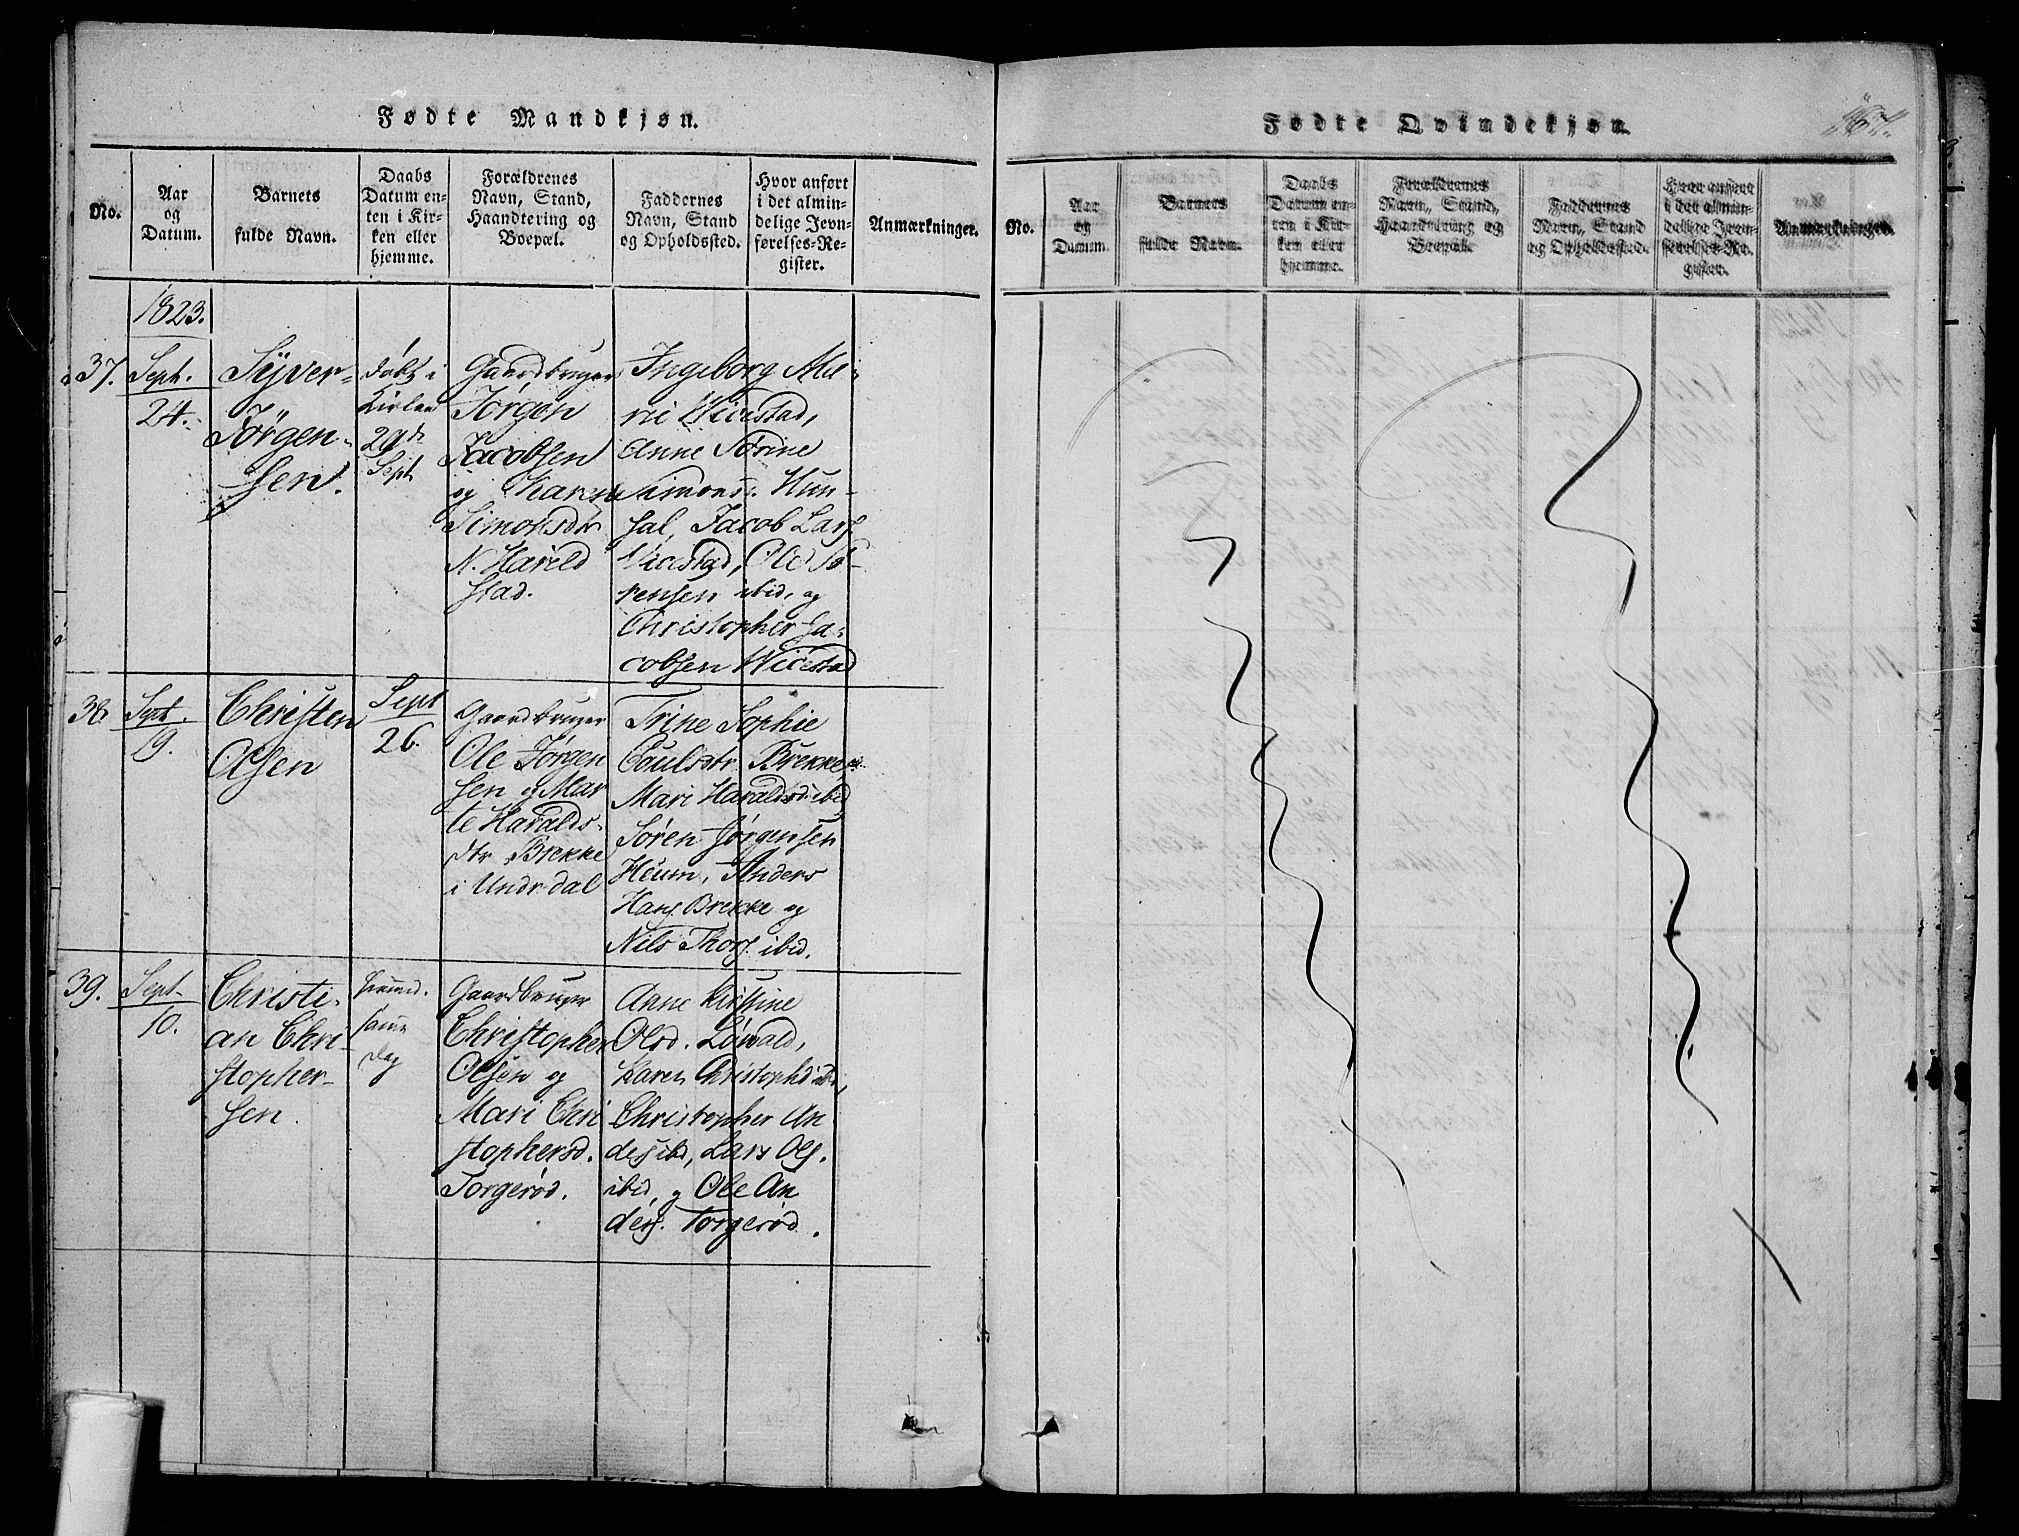 Fødte Mandkjøn.
No.
Aar
og
Datum.
Barnets
fulde Navn.
Daabs
Datum en-
ten i Kir-
ken eller
hjemme.
Forældrenes
Navn, Stand,
Haandtering og
Boepæl.
Faddernes
Navn, Stand
og Opholdssted.
Hvor anført
i det almin-
delige Jevn-
førelses-Re-
gister.
Anmærkninger.
1823.
37.
Sept.
24.
Syver
Jörgen-
sen.
døbt i
Kirken
29de
Sept
Gaardbruger
Jörgen
Jacobsen
og Karen
Simonsdtr
N. Harild
stad.
Ingeborg Ma-
rie Wirestad,
Anne Sørine
Simonsd. Hun-
sal, Jacob Lars.
Wirestad, Ole Sø-
rensen ibid, og
Christopher Ja-
cobsen Wirestad
38.
Sept.
19.
Christen
Olsen
Sept
26.
Gaardbruger
Ole Jørgen
sen og Mar
te Haralds-
dtr Brekke
i Undrdal
Trine Sophie
Paulsdtr Brekke
Mari Haraldsd. ibid
Søren Jørgensen
Heum, Anders
Hans. Brekke og
Nils Thors. ibid.
39.
Sept.
10.
Christi-
an Chri-
stopher-
sen.
hiemd.
samme
Dag
Gaardbruger
Christopher
Olsen og
Mari Chri
stophersd.
Torgerød.
Anne Kirstine
Olsd. Løvald,
Karen Christophd ibd,
Christopher An
ders ibd, Lars Ols.
ibid, og Ole An
ders. Torgerød.
Fødte Qvindekjøn.
167.
No.
Aar
og
Datum.
Barnets
fulde Navn.
Daabs
Datum en-
ten i Kir-
ken eller
hjemme.
Forældrenes
Navn, Stand,
Haandtering og
Boepæl.
Faddernes
Navn, Stand
og Opholdssted.
Hvor anført
i det almin-
delige Jevn-
førelses-Re-
gister.
Anmærkninger.